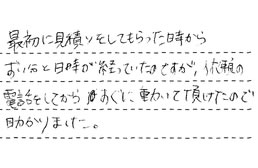 最初に見積りをしてもらった日時から
ずい分と日時が経っていたのですが、依頼の
電話をしてからすぐに動いて頂けたので
助かりました。